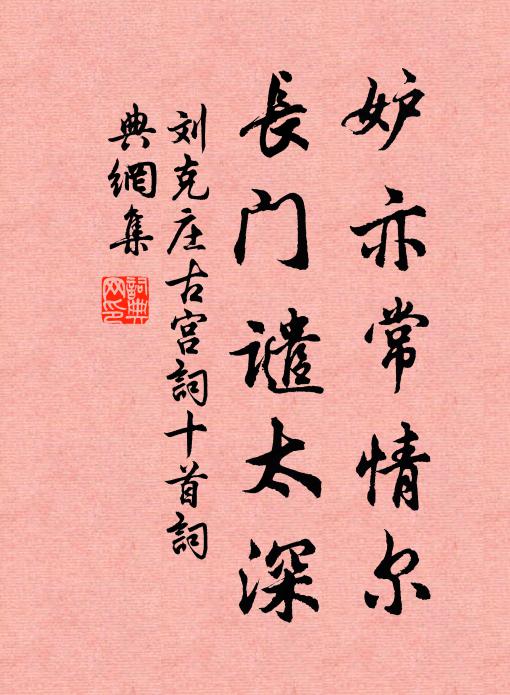 妒亦常情尔
長门谴太深
刘克庄古宫詞十首詞
典網集
詞典网印